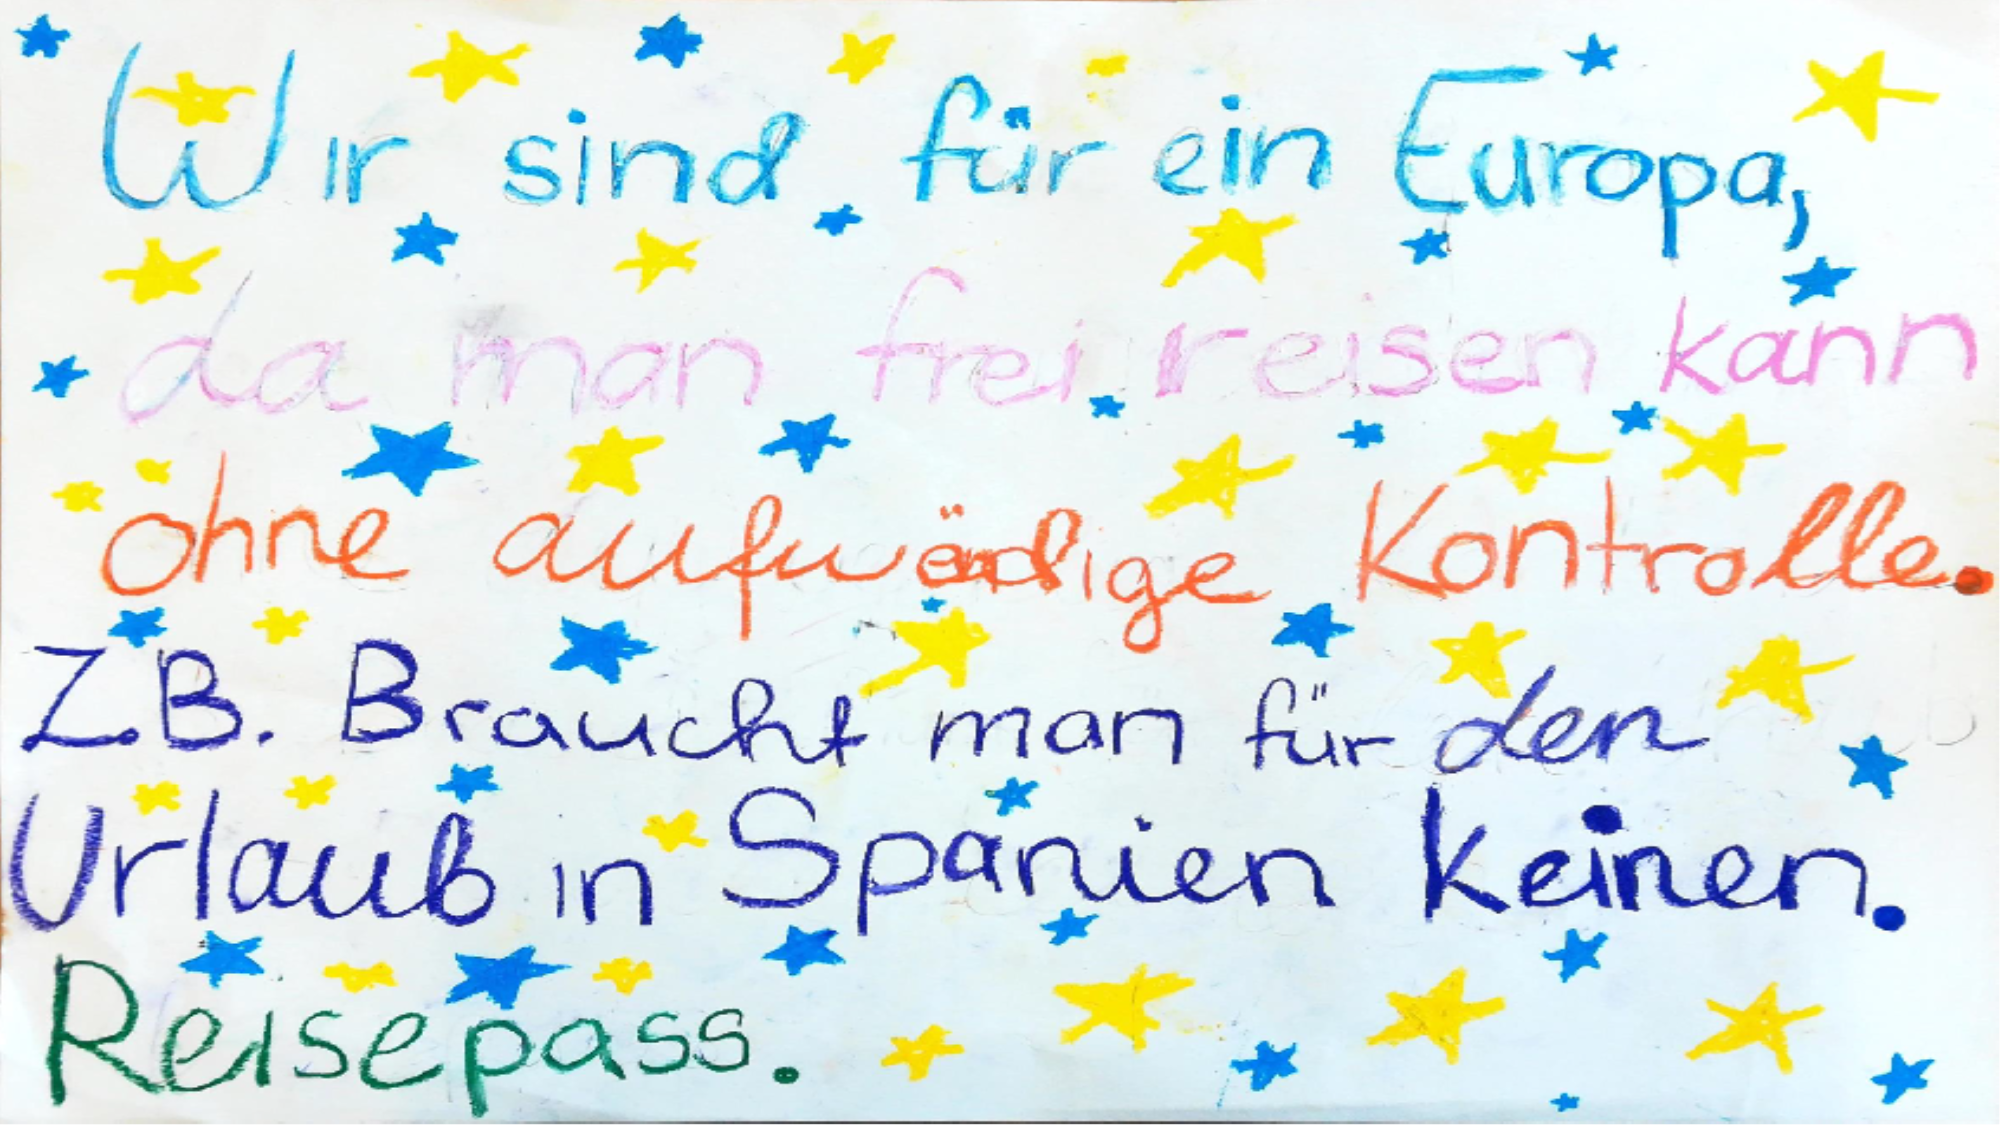 Wir sind für ein Europa,
da man frei reisen kann
ohne aufwändige Kontrolle.
Z.B. Braucht man für den
Urlaub in Spanien keinen.
Reisepass.